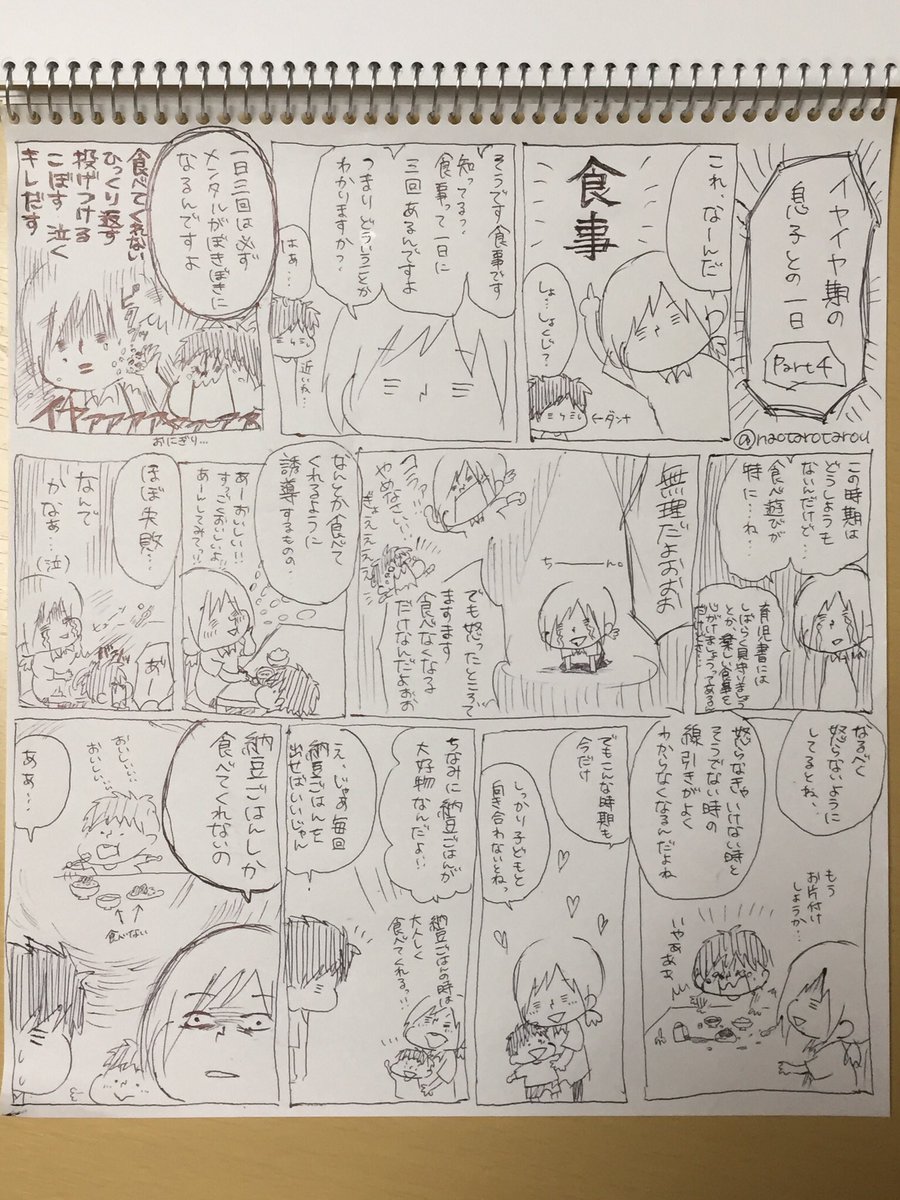 イヤイヤ期の
息子との一日
Part4
@naotarotarou
これ、なーんだ
食事
しょ…しょくじ?
←ダンナ
そうです食事です
知ってる?
食事って一日に
三回あるんですよ
つまりどういうことか
わかりますか?
はぁ…
近いね…
一日三回は必ず
メンタルがぼきぼきに
なるんですよ
食べてくれない
ひっくり返す
投げつける
こぼす 泣く
キレだす
イヤァァァァァ
おにぎり…
この時期は
どうしようも
ないんだけど…
食べ遊びが
特に…ね…
育児書には
しばらく見守りましょう
とか、楽しい食事を
心がけましょうってあるけど
無理だよおおお
ちーーん。
でも怒ったところで
ますます
食べなくなる
だけなんだよおお
やめなさい…
ぎゃぇぇぇぇ
なんとか食べて
くれるように
誘導するもの…
あーおいしい…
すっごくおいしいよ…
あーんしてみてっ…
ほぼ失敗…
なんで
かなぁ…(泣)
あ"ー
なるべく
怒らないように
してるとね…
怒らなきゃいけない時と
そうでない時の
線引きがよく
わからなくなるんだよね
もう
お片付け
しようか…
いやああぁ
でもこんな時期も
今だけ
しっかり子どもと
向き合わないとねっ
ちなみに納豆ごはんが
大好物なんだよ…
納豆ごはんの時は
大人しく
食べてくれるっ…
え、じゃあ毎回
納豆ごはんを
出せばいいじゃん
納豆ごはんしか
食べてくれないの
おいしい…
おいしい…
↑ ↑
食べない
あぁ…